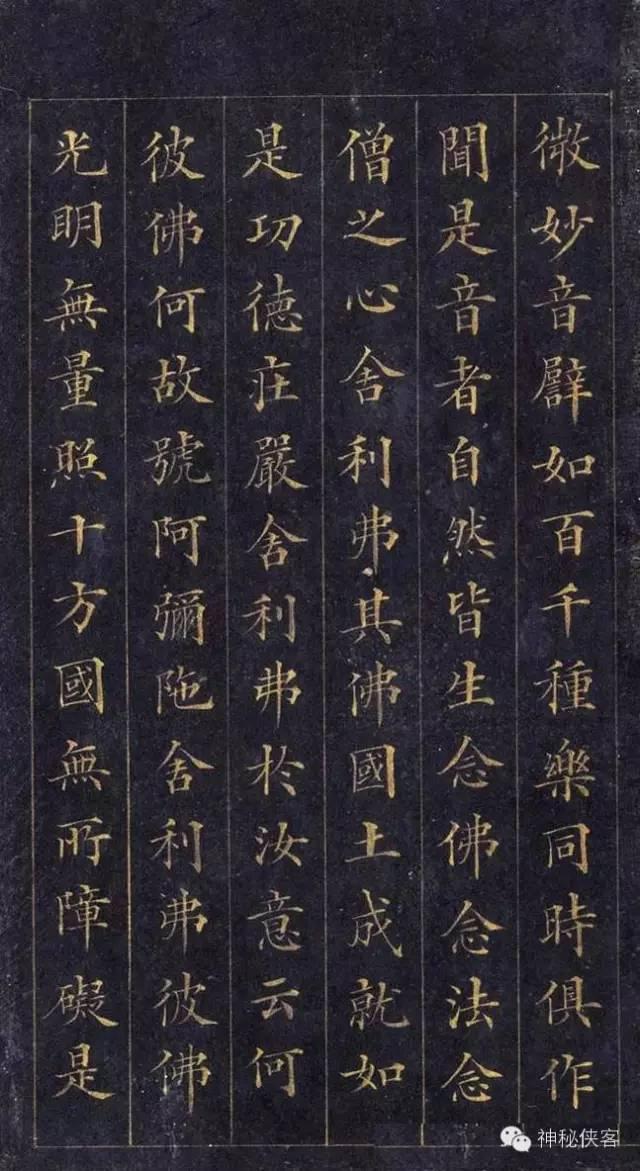 微妙音譬如百千種樂同時俱作
聞是音者自然皆生念佛念法念
僧之心舍利弗其佛國土成就如
是功德莊嚴舍利弗於汝意云何
彼佛何故號阿彌陁舍利弗彼佛
光明無量照十方國無所障礙是
神秘侠客